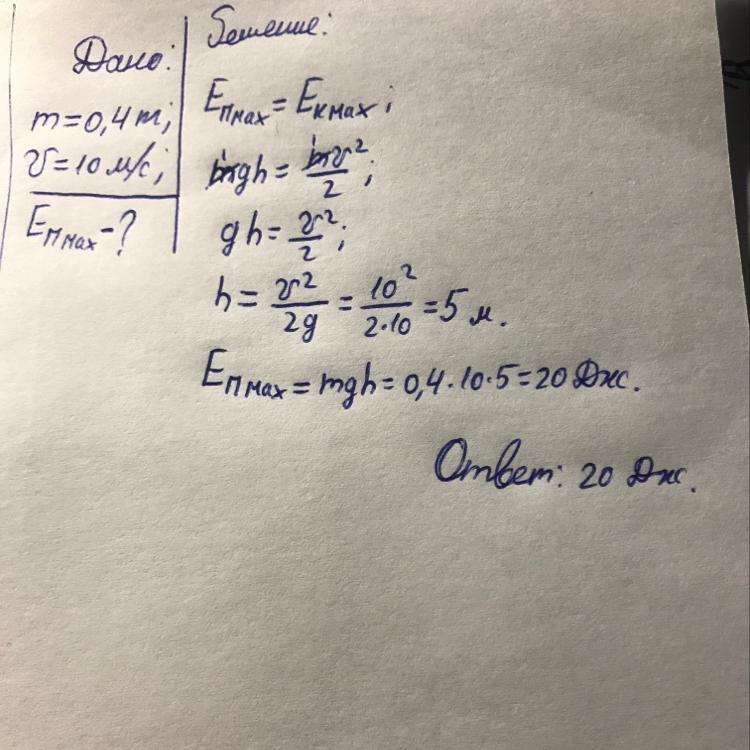 Дано:
m=0,4 т;
v=10 м/с;
Eп max-?
Решение:
Eп max = Eк max;
mgh = mv²/2;
gh = v²/2;
h = v²/2g = 10²/2·10 = 5 м.
Eп max = mgh = 0,4·10·5 = 20 Дж.
Ответ: 20 Дж.